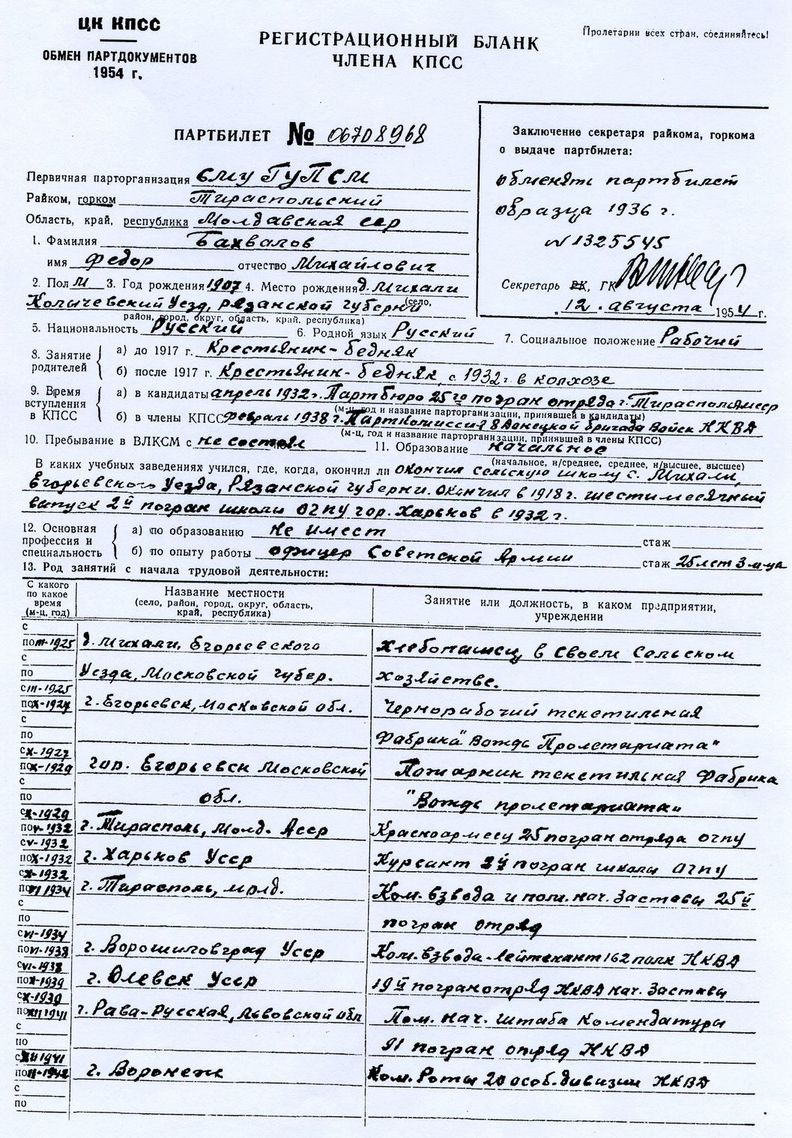 ЦК КПСС
ОБМЕН ПАРТДОКУМЕНТОВ
1954 г.
РЕГИСТРАЦИОННЫЙ БЛАНК
ЧЛЕНА КПСС
Пролетарии всех стран, соединяйтесь!
ПАРТБИЛЕТ № 06708968
Заключение секретаря райкома, горкома
о выдаче партбилета:
обменять партбилет
образца 1936 г.
N 1325545
Секретарь РК, ГК
"12" августа 1954 г.
Первичная парторганизация СМУ ГУПСМ
Райком, горком Тираспольский
Область, край, республика Молдавская сср
1. Фамилия Бахвалов
имя Федор отчество Михайлович
2. Пол М 3. Год рождения 1907 4. Место рождения д. Михали
Колычевский Уезд, Рязанской Губернии (село,
район, город, округ, область, край, республика)
5. Национальность Русский 6. Родной язык Русский 7. Социальное положение Рабочий
8. Занятие родителей а) до 1917 г. Крестьянин-бедняк
б) после 1917 г. Крестьянин-бедняк, с 1932 г. в колхозе
9. Время вступления в КПСС а) в кандидаты апрель 1932 г. Партбюро 25го погран отряда г. Тирасполь мсср
(м-ц, год и название парторганизации, принявшей в кандидаты)
б) в члены КПСС февраль 1938 г. Парткомиссия 8 Донецкой бригады Войск НКВД
(м-ц, год и название парторганизации, принявшей в члены КПСС)
10. Пребывание в ВЛКСМ с не состоял 11. Образование начальное
(начальное, н/среднее, среднее, н/высшее, высшее)
В каких учебных заведениях учился, где, когда, окончил ли окончил сельскую школу с. Михали,
Егорьевского Уезда, Рязанской Губерни. Окончил в 1918 г. шестимесячный
выпуск 2й погран школы ОГПУ гор. Харьков в 1932 г.
12. Основная профессия и специальность а) по образованию Не имеет стаж
б) по опыту работы офицер Советской Армии стаж 25 лет 3 м-ца
13. Род занятий с начала трудовой деятельности:
С какого по какое время (м-ц, год) Название местности (село, район, город, округ, область, край, республика) Занятие или должность, в каком предприятии, учреждении
с
по III-1925 д. Михали, Егорьевского Хлебопашец, в своем сельском
с
по Уезда, Московской Губер. хозяйстве.
с III-1925
по X-1927 г. Егорьевск, Московской обл. Чернорабочий текстильная
с
по Фабрика "Вождь Пролетариата"
с X-1927
по X-1929 гор. Егорьевск Московской Пожарник текстильная Фабрика
с
по обл. "Вождь пролетариата"
с X-1929
по V-1932 г. Тирасполь, Молд. Асср Красноармеец 25 погран отряда ОГПУ
с V-1932
по X-1932 г. Харьков Усср Курсант 2й погран школы ОГПУ
с X-1932
по VI 1934 г. Тирасполь, молд. Ком. взвода и пом. нач. Заставы 25й
с
по погран отряд
с VI-1934
по VI-1938 г. Ворошиловград Усср Ком. взвода-лейтенант 162 полк НКВД
с VI-1938
по X-1939 г. Олевск Усср 19й погранотряд НКВД нач. Заставы
с X-1939
по XII 1941 г. Рава-Русская, Львовской обл Пом. нач. штаба Комендатуры
с
по 91 погран отряд НКВД
с XII 1941
по II-1942 г. Воронеж Ком. Роты 20 особ. дивизии НКВД
с
по